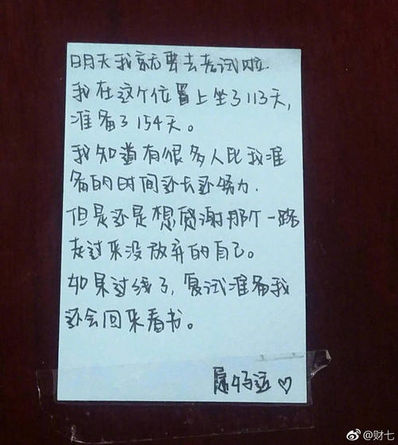 明天我就要去考试啦
我在这个位置上坐了113天，
准备了154天。
我知道有很多人比我准
备的时间还长还努力．
但是还是想感谢那个一路
走过来没放弃的自己。
如果过线了，复试准备我
还会回来看书。
@财七